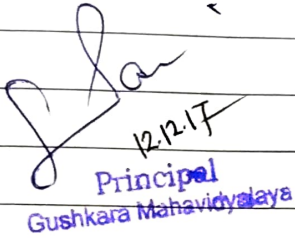 12.12.17
Principal
Gushkara Mahavidyalaya